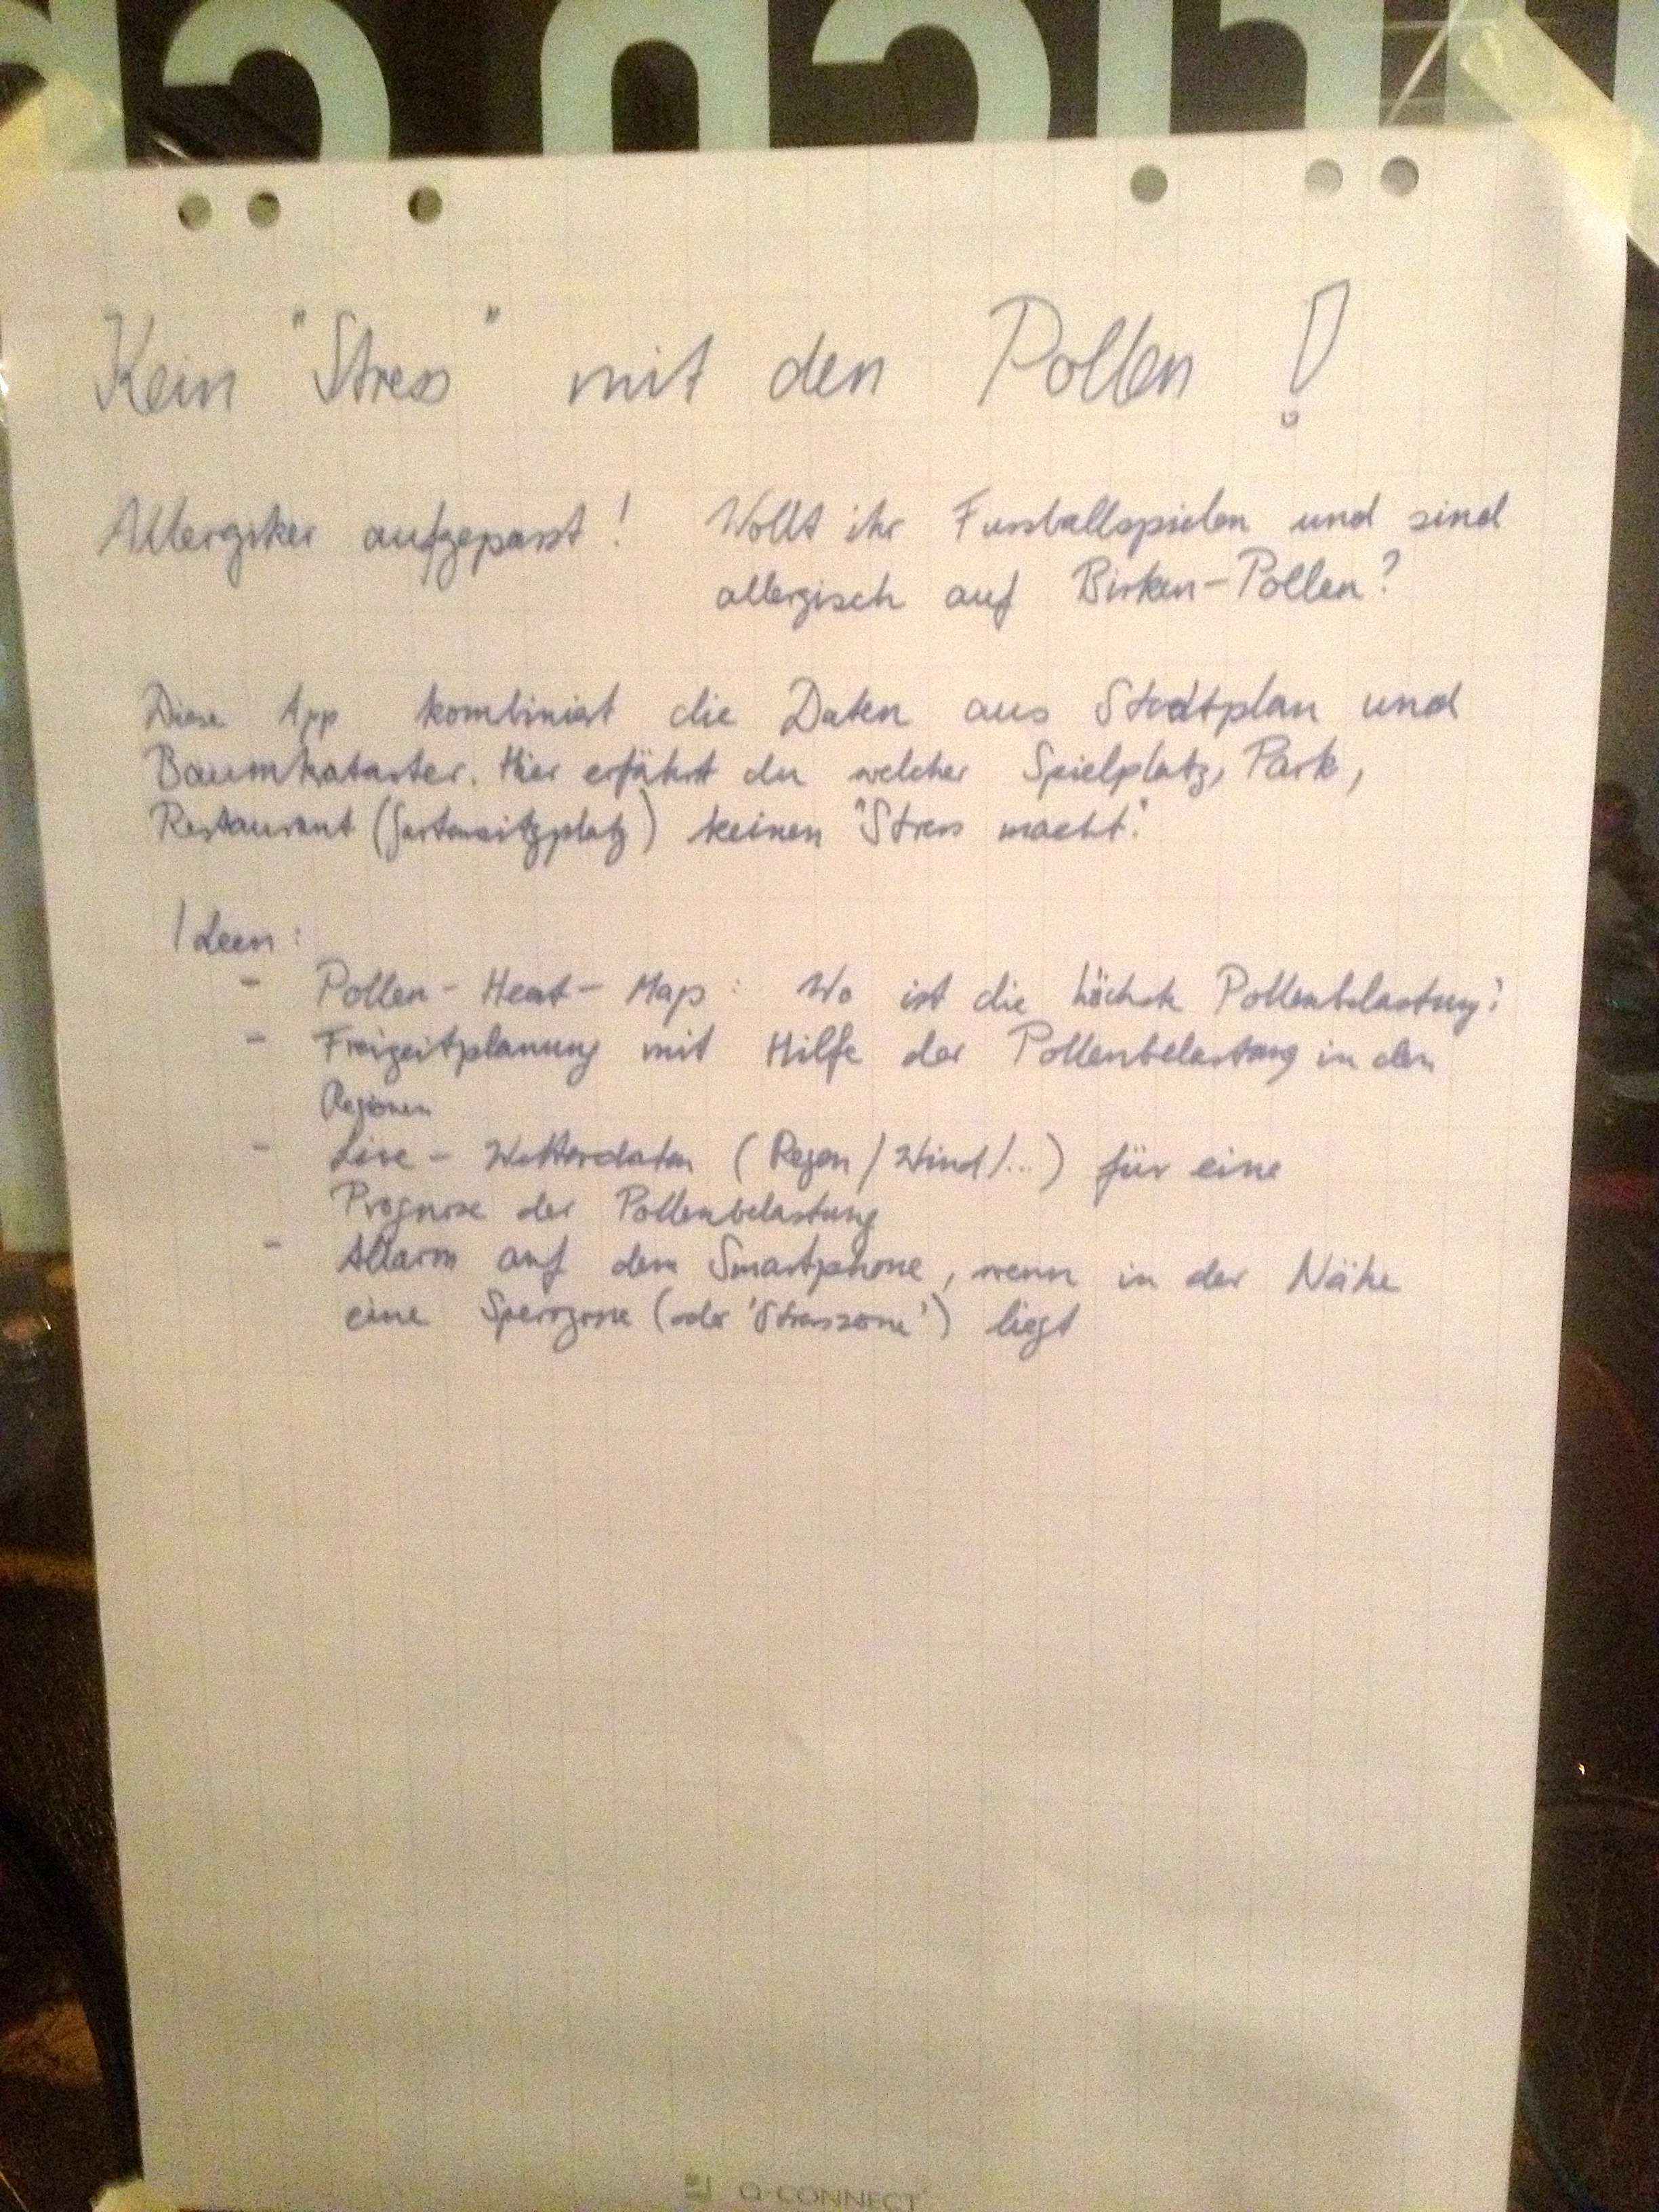 Kein "Stress" mit den Pollen !
Allergiker aufgepasst ! Wollt ihr Fussballspielen und sind
allergisch auf Birken-Pollen?
Diese App kombiniert die Daten aus Stadtplan und
Baumkataster. Hier erfährt du welcher Spielplatz, Park,
Restaurant (Gartensitzplatz) keinen "Stress macht."
Ideen:
- Pollen-Heat-Map: Wo ist die höchste Pollenbelastung?
- Freizeitplanung mit Hilfe der Pollenbelastung in den
Regionen
- Live-Wetterdaten (Regen/Wind/...) für eine
Prognose der Pollenbelastung
- Allarm auf dem Smartphone, wenn in der Nähe
eine Sperrzone (oder 'Stresszone') liegt
Q-CONNECT